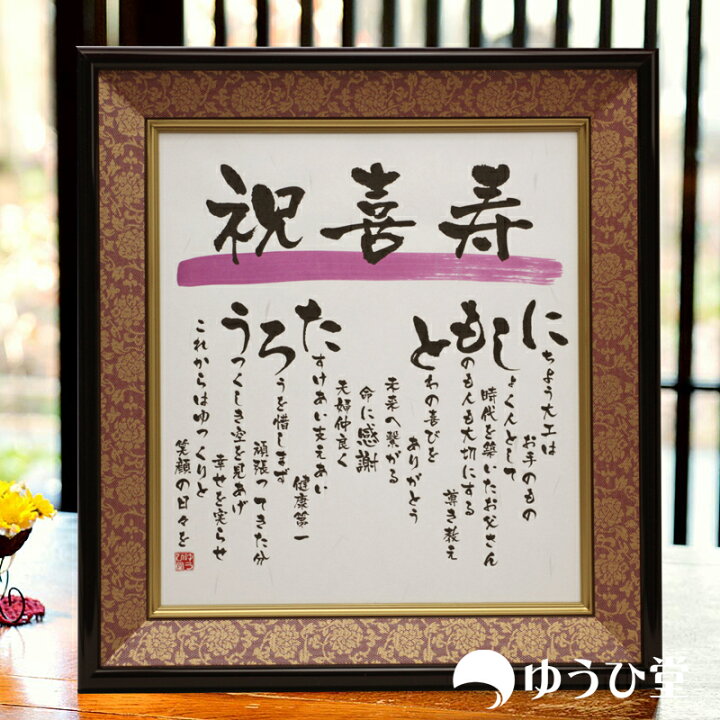 祝喜寿
にちよう大工は
お手のもの
しょくんとして
時代を築いたお父さん
ものも人も大切にする
導き教え
とわの喜びを
ありがとう
未来へ繋がる
命に感謝
夫婦仲良く
たすけあい支えあい
健康第一
ろうを惜しまず
頑張ってきた分
うつくしき空を見あげ
幸せを実らせ
これからはゆっくりと
笑顔の日々を
ゆうひ堂